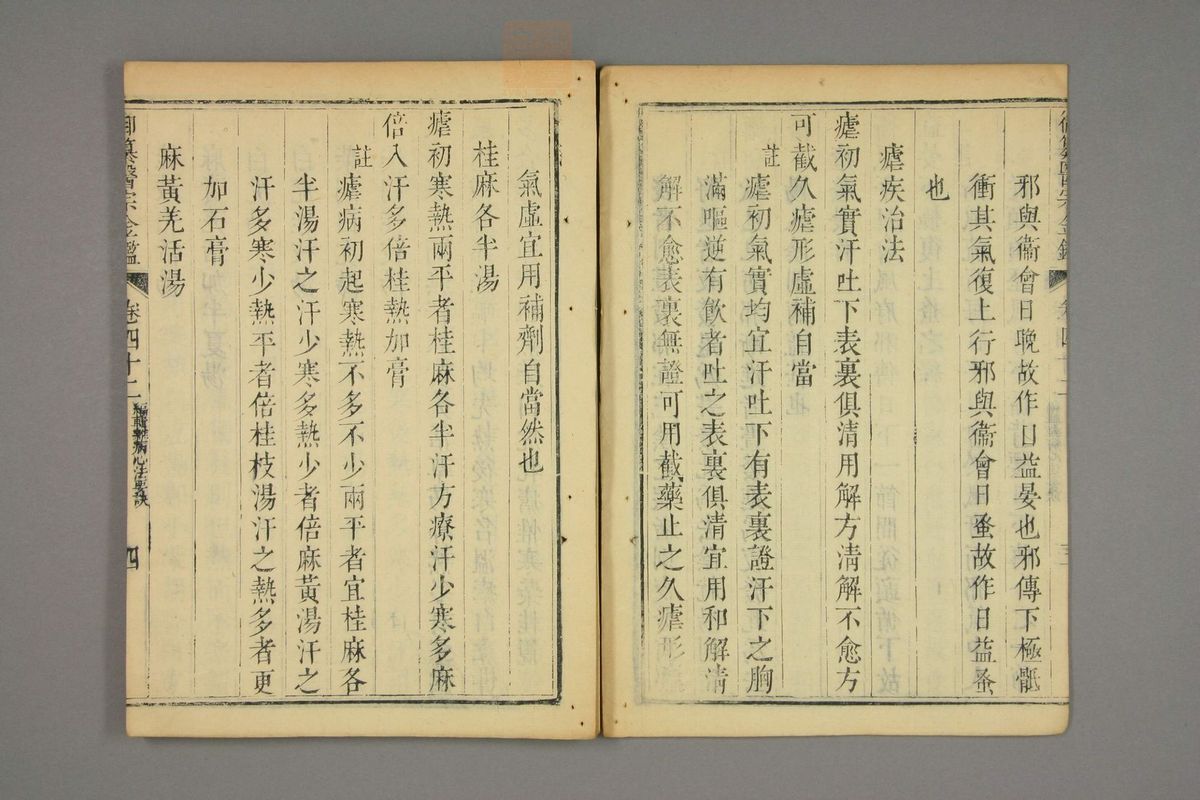 邪與衞會日晚故作日益晏也邪傳下極骶
衝其氣復上行邪與衞會日蚤故作日益蚤
也
瘧疾治法
瘧初氣實汗吐下表裏俱清用解方清解不愈方
可截久瘧形虛補自當
註瘧初氣實均宜汗吐下有表裏證汗下之胸
滿嘔逆有飲者吐之表裏俱清宜用和解清
解不愈表裏無證可用截藥止之久瘧形
氣虛宜用補劑自當然也
桂麻各半湯
瘧初寒熱兩平者桂麻各半汗方療汗少寒多麻
倍入汗多倍桂熱加膏
註瘧病初起寒熱不多不少兩平者宜桂麻各
半湯汗之汗少寒多熱少者倍麻黃湯汗之
汗多寒少熱平者倍桂枝湯汗之熱多者更
加石膏
麻黃羌活湯
御纂醫宗金鑑 卷四十二 編輯雜病心法要訣 四